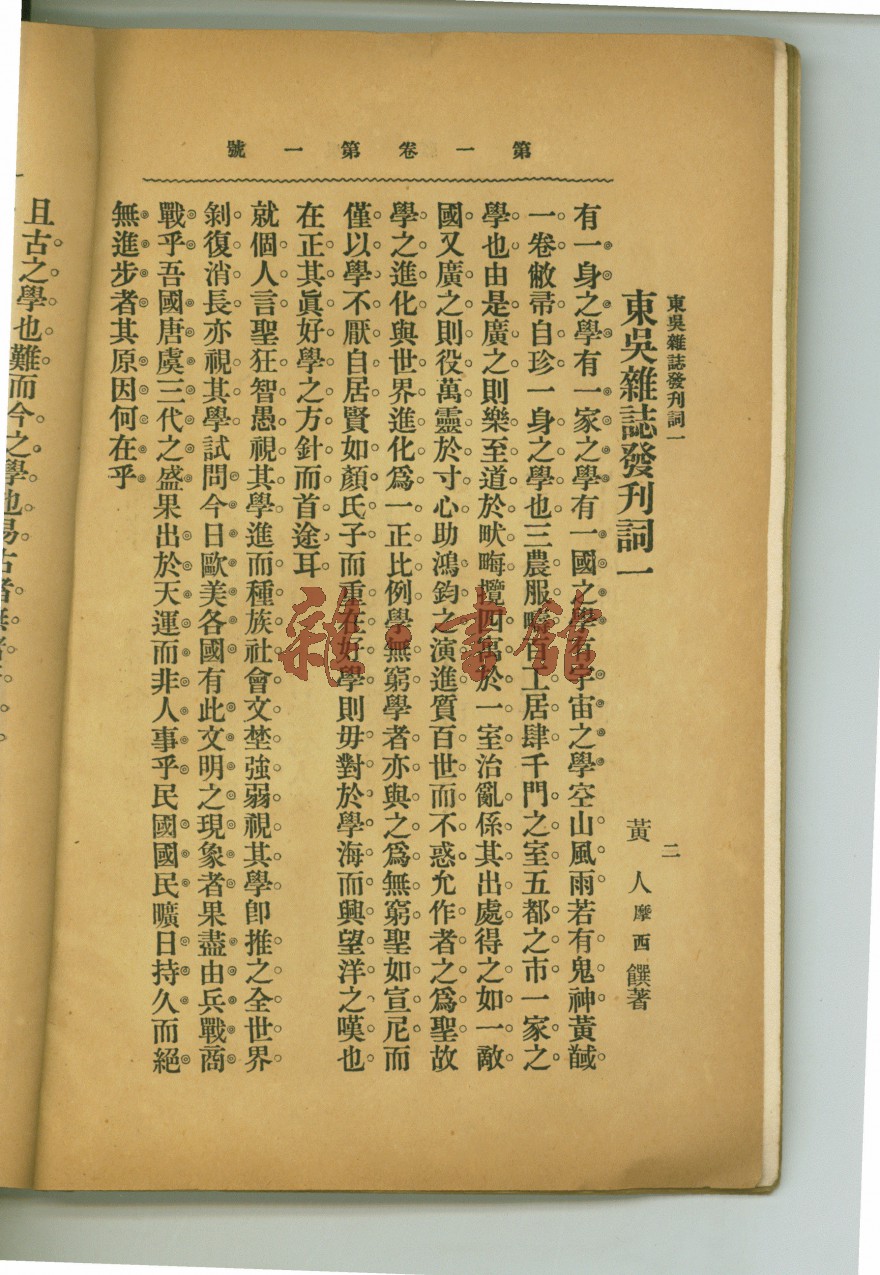 第一卷第一號
東吳雜誌發刊詞一
二
東吳雜誌發刊詞一
黃人摩西饌著
有一身之學有一家之學有一國之學有宇宙之學空山風雨若有鬼神黃馘
一卷敝帚自珍一身之學也三農服疇百工居肆千門之室五都之市一家之
學也由是廣之則樂至道於畎畮攬四萬於一室治亂係其出處得之如一敵
國又廣之則役萬靈於寸心助鴻鈞之演進質百世而不惑允作者之為聖故
學之進化與世界進化為一正比例學無窮學者亦與之為無窮聖如宣尼而
僅以學不厭自居賢如顏氏子而重在好學則毋對於學海而興望洋之嘆也
在正其眞好學之方針而首途耳
就個人言聖狂智愚視其學進而種族社會文埜強弱視其學卽推之全世界
剝復消長亦視其學試問今日歐美各國有此文明之現象者果盡由兵戰商
戰乎吾國唐虞三代之盛果出於天運而非人事乎民國國民曠日持久而絕
無進步者其原因何在乎
且古之學也難而今之學也易古者無
雜·書館